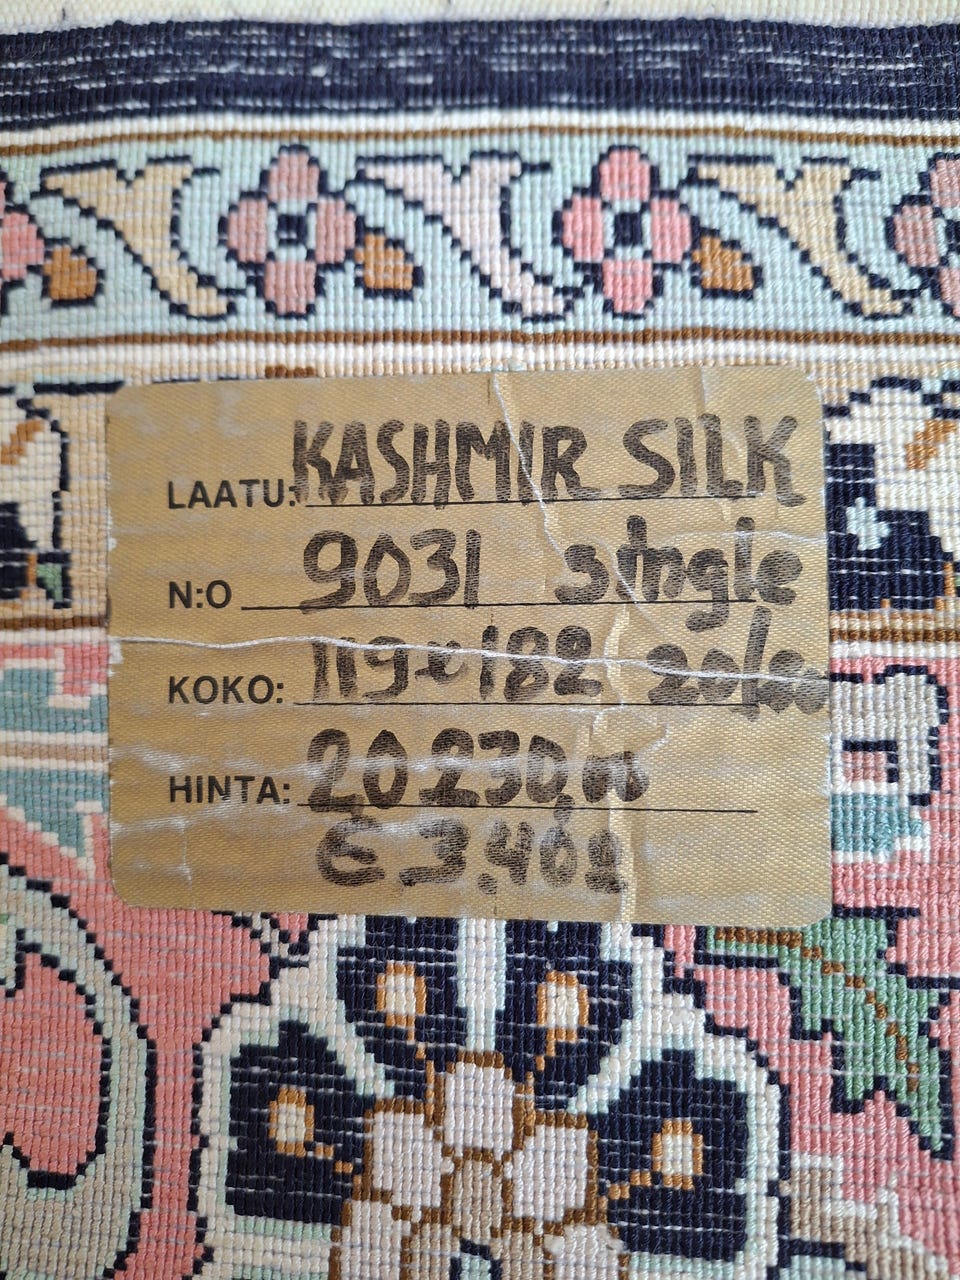 LAATU: KASHMIR SILK
N:O 9031 single
KOKO: 119x182 20/20
HINTA: 20.230,00
€ 3.402